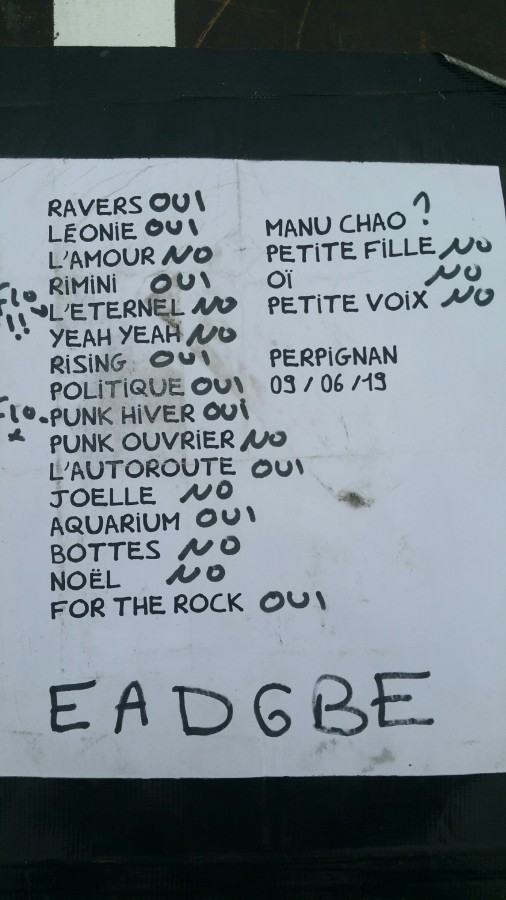 RAVERS OUI
LÉONiE OUI
L'AMOUR NO
RiMiNi OUI
FLO !! L'ETERNEL NO
YEAH YEAH NO
RiSiNG OUI
POLiTiQUE OUI
FLO. x PUNK HiVER OUI
PUNK OUVRiER NO
L'AUTOROUTE OUI
JOELLE NO
AQUARiUM OUI
BOTTES NO
NOËL NO
FOR THE ROCK OUI
MANU CHAO ?
PETiTE FiLLE NO
OÏ NO
PETiTE VOiX NO
PERPiGNAN
09 / 06 / 19
E A D G B E